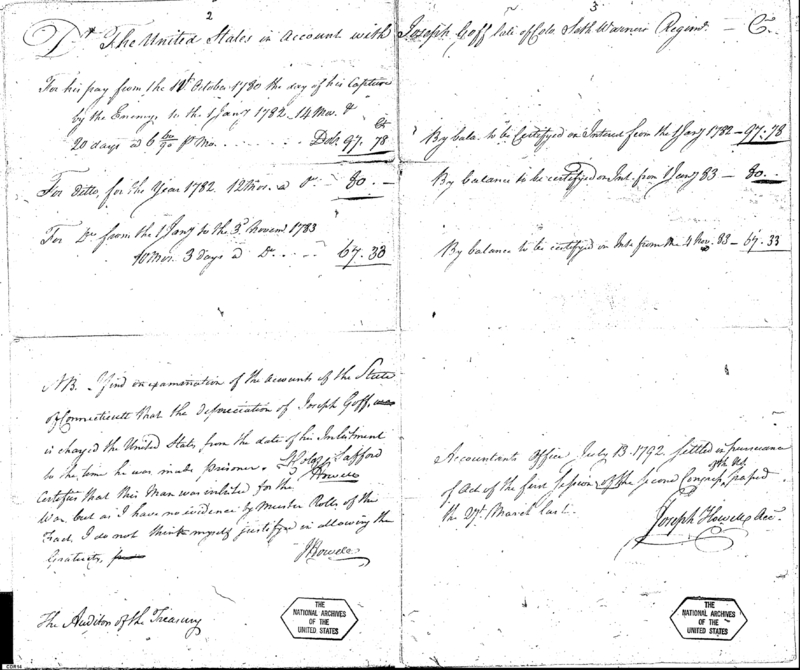 2
Dr. The United States in Account with
For his pay from the 11th October 1780 the day of his Capture
by the Enemy, to the 1 Jany 1782 - 14 Mos. &
Cts
20 days a 6 60/90 pr Mo. . . . . . . Dols. 97. 78
For Ditto, for the Year 1782. 12 Mos. a Do 80. -
For Do. from the 1 Jany to the 3d. Novemr 1783
10 Mos. 3 days a Do. . . . 67. 33
NB. I find on examination of the Accounts of the State
of Connecticutt that the depreciation of Joseph Goff,
is charged the United States from the date of his Inlistment
to the time he was made prisoner. Colo. Safford
JHowell
Certifies that this Man was inlisted for the
War, but as I have no evidence by Muster Rolls of the
Fact, I do not think myself justifyed in allowing the
Gratuity,
JHowell
The Auditor of the Treasury
THE
NATIONAL ARCHIVES
OF THE
UNITED STATES
3
Joseph Goff late of Colo. Seth Warners Regimt. - Cr.
By bala. to be Certifyed on Interest from the 1 Jany 1782 - 97. 78
By balance to be certifyed on Int. from 1 Jany 83 - 80. -
By balance to be certifyed on Int. from the 4 Nov. 83 - 67. 33
Accountants Office July 13. 1792. Settled in pursuance
of Act of the first Session of the Second Congress, passed
the 27th. March last.
Joseph Howell Acct.
THE
NATIONAL ARCHIVES
OF THE
UNITED STATES